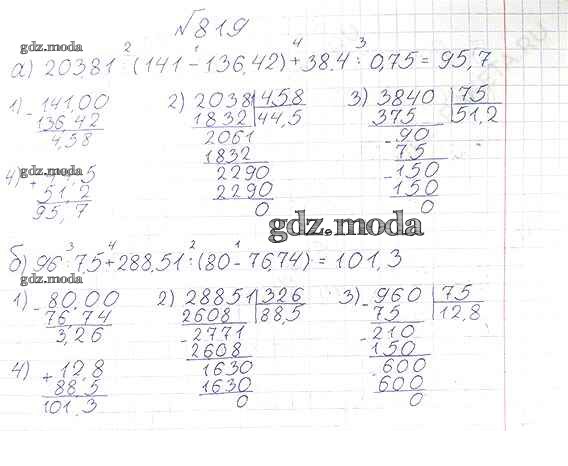 √819
2 1 4 3
а) 20381 : (141 - 136,42) + 38.4 : 0,75 = 95,7
gdz.moda
1) - 141,00 2) 2038 | 458 3) 3840 | 75
136,42 1832 | 44,5 375 | 51,2
4,58 2061 - 90
1832 75
4) + 5 2290 - 150
51,2 2290 150
95,7 0 0
gdz.moda
gdz.moda
3 4 2 1
б) 96 : 7,5 + 288,51 : (80 - 76,74) = 101,3
gdz.moda
1) - 80,00 2) 28851 | 326 3) - 960 | 75
76,74 2608 | 88,5 75 | 12,8
3,26 - 2771 - 210
2608 150
4) + 12,8 1630 - 600
88,5 1630 600
101,3 0 0